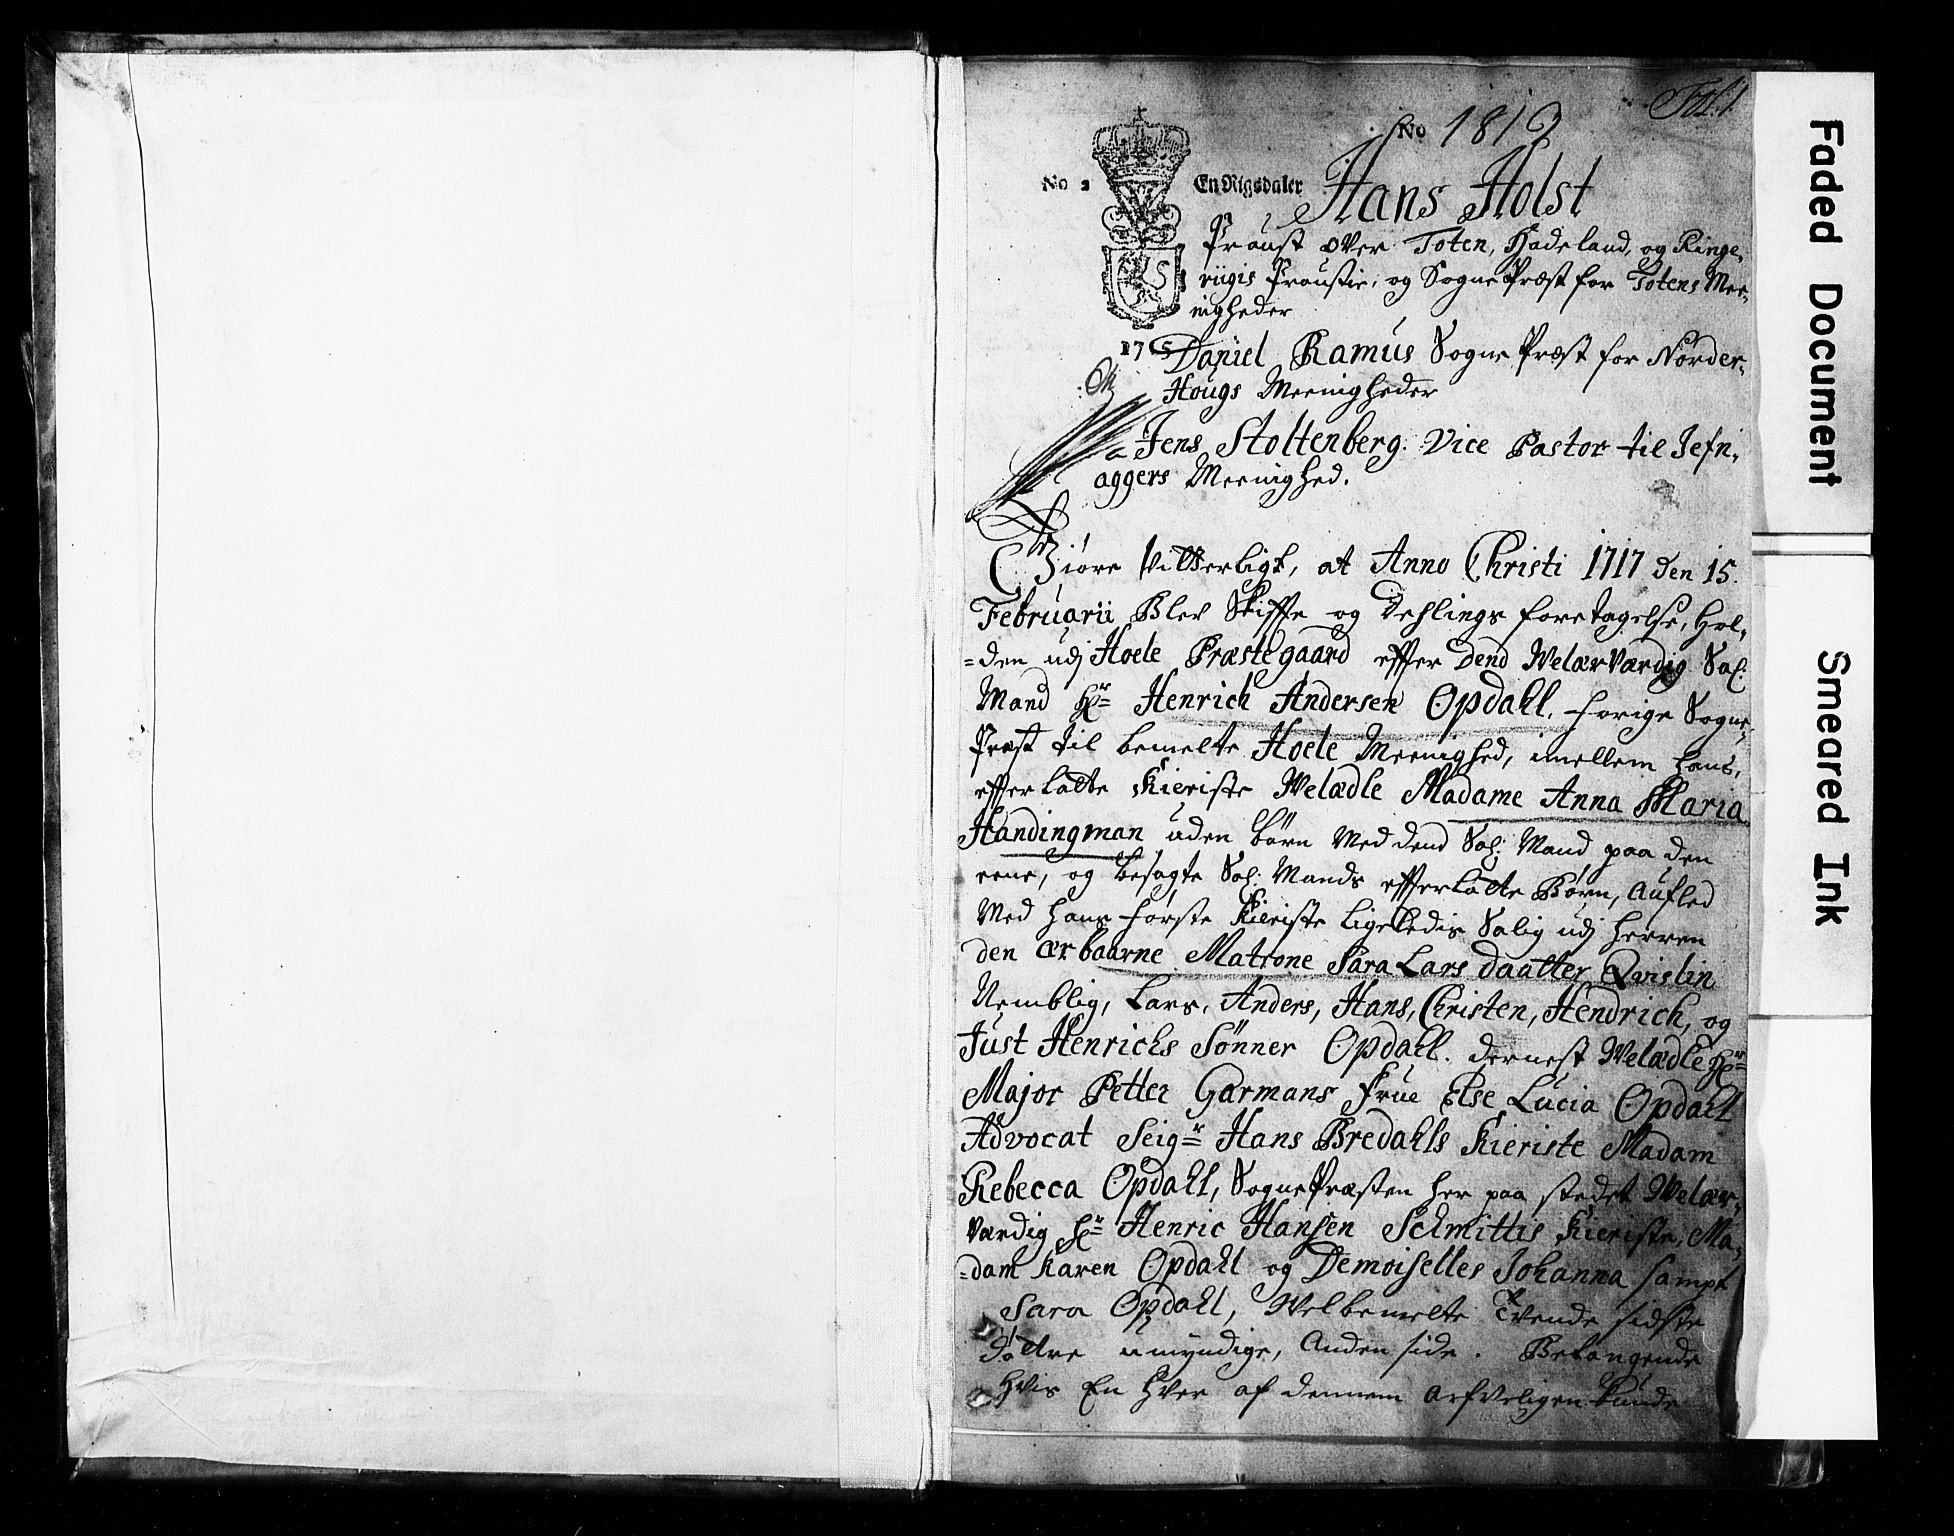 Fol: 1
No 1819
No 2 En Rigsdaler
Hans Holst
Proust over Toten, Hadeland, og Ringe,
riigis Proustie, og Sogne Præst for Totens Mee,
nigheder
1715
Daniel Ramus Sogne Præst for Norder,
Hougs Meenigheder
Jens Stoltenberg. Vice Pastor til Jefn,
aggers Meenighed.
Giøre Vitterligt, at Anno Christi 1717 den 15.
Februarii Blev Skiffte og Dehlings foretagelse, Hol,
=den udj Hoele Præstegaard effter Dend Welærværdig Sal:
Mand Hr Henrich Andersen Opdahl, forige Sogne,
Præst til bemelte Hoele Meenighed, imellem hans,
effterlatte Kieriste Welædle Madame Anna Maria
Handingman uden børn Med dend Sal: Mand paa den
eene, og besagte Sal: Mands effterlatte Børn, Aufled
Med hans første Kieriste ligeledis Salig udj Herren
den ærbaarne Matrone Sara Lars daatter Qvislin
Nemblig, Lars, Anders, Hans, Christen, Hendrich, og
Just Henrichs Sønner Opdahl. dernest Welædle Hr
Major Petter Garmans Frue Else Lucia Opdahl
Advocat Seigr Hans Bredahls Kieriste Madam
Rebecca Opdahl, SognePræsten her paa stedet Welær,
værdig Hr Henric Hansen Schmittis Kieriste, Ma,
=dam Karen Opdahl og Demoiselles Johanna sampt
Sara Opdahl, Welbemelte Tvende sidste
døttre umyndige, Anden side. Belangende
hvis En hver af dennem arfveligen kunde
Faded Document
Smeared Ink